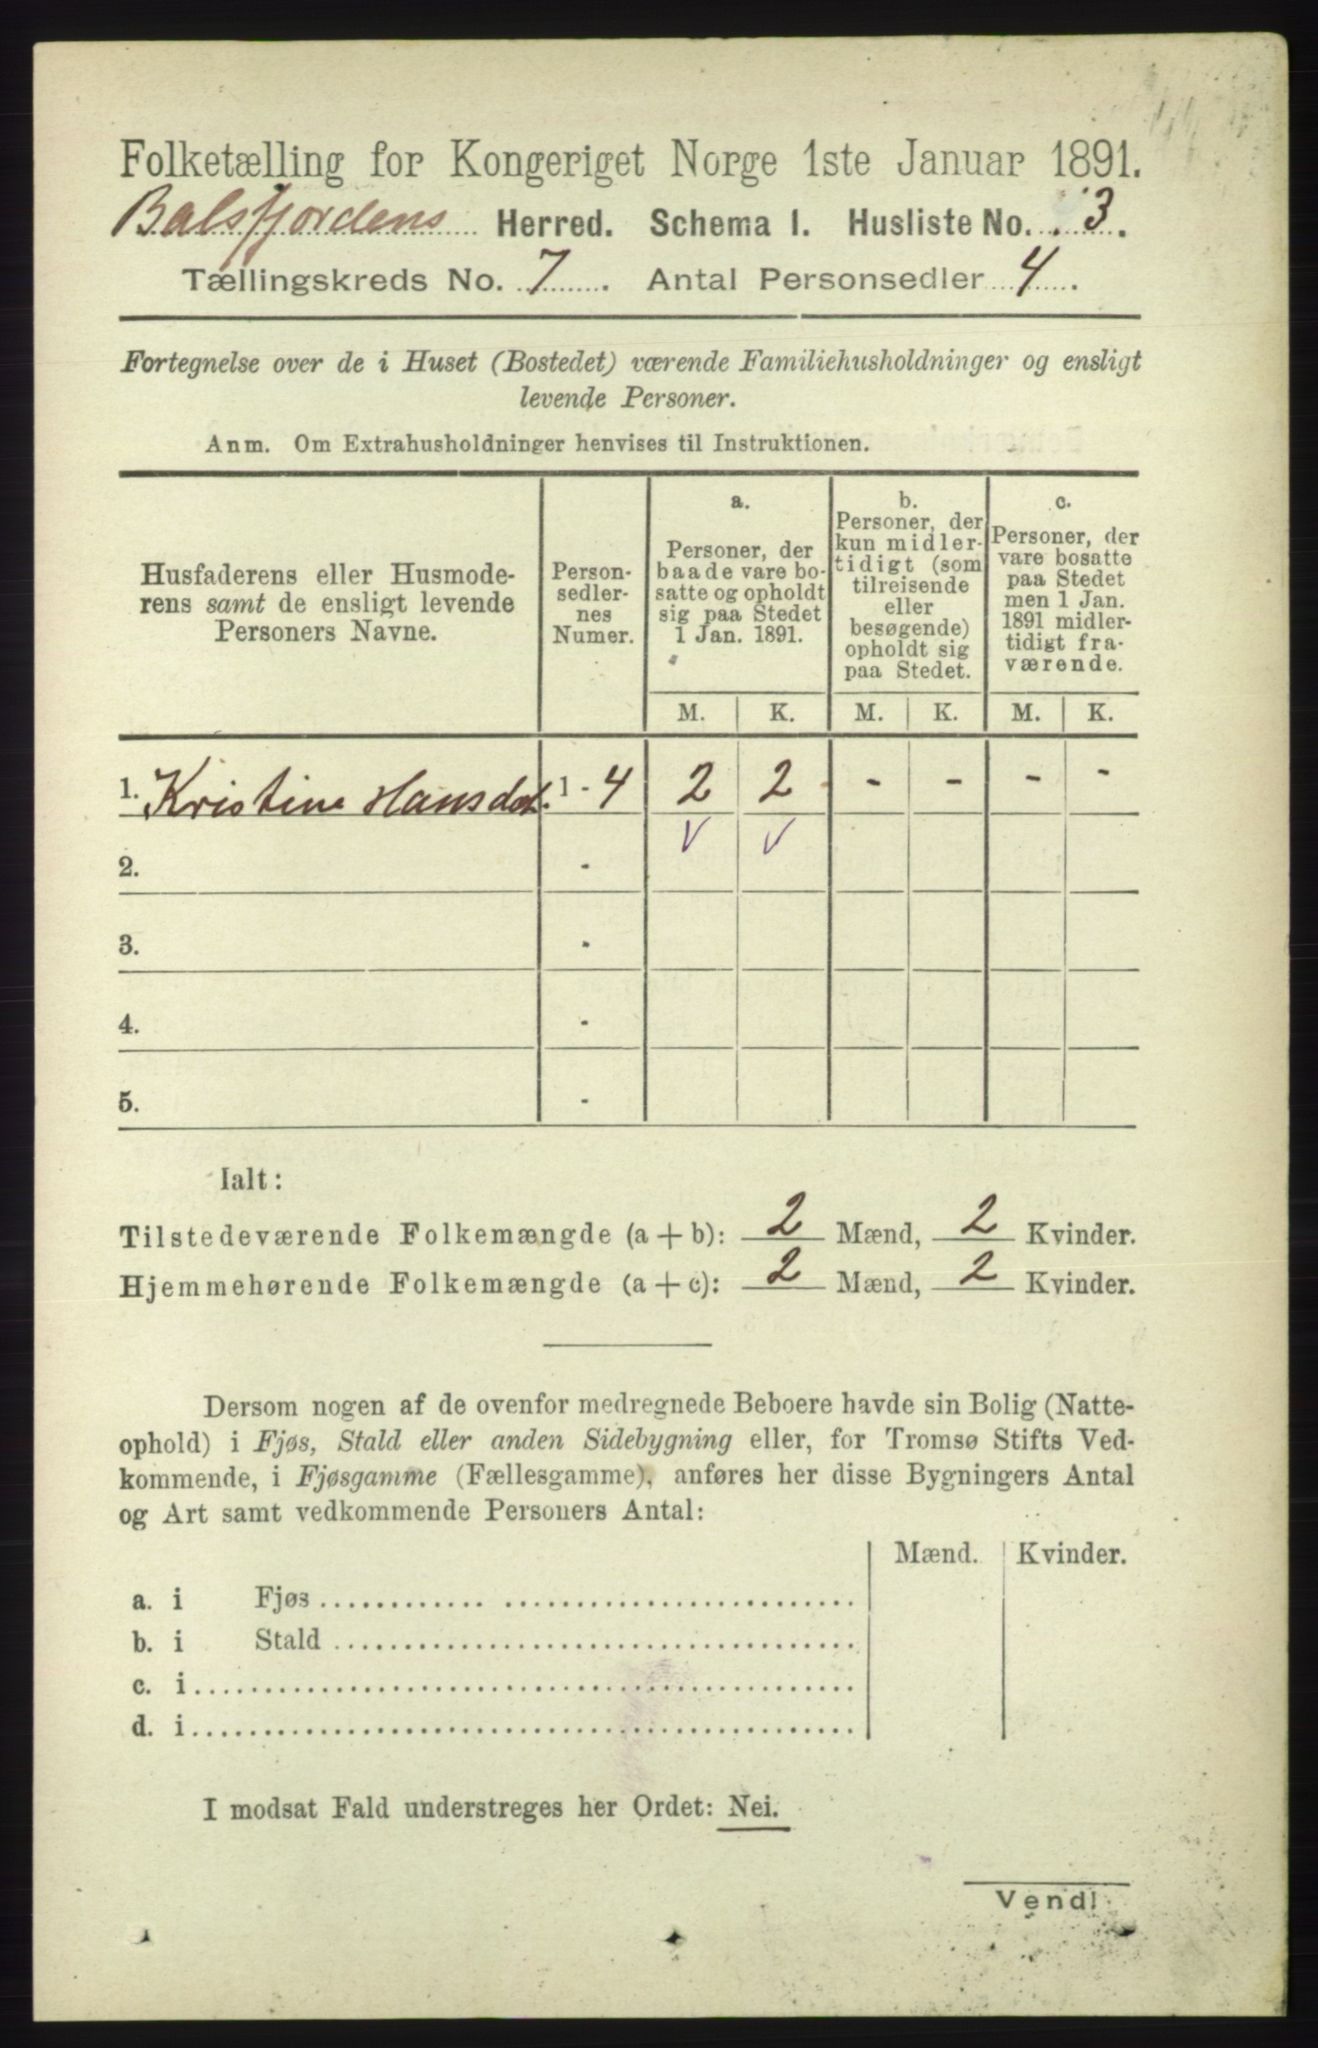 Folketælling for Kongeriget Norge 1ste Januar 1891.
Balsfjordens Herred. Schema I. Husliste No. 3.
Tællingskreds No. 7. Antal Personsedler 4.
Fortegnelse over de i Huset (Bostedet) værende Familiehusholdninger og ensligt
levende Personer.
Anm. Om Extrahusholdninger henvises til Instruktionen.
Husfaderens eller Husmode-
rens samt de ensligt levende
Personers Navne.
Person-
sedler-
nes
Numer.
a.
Personer, der
baade vare bo-
satte og opholdt
sig paa Stedet
1 Jan. 1891.
b.
Personer, der
kun midler-
tidigt (som
tilreisende
eller
besøgende)
opholdt sig
paa Stedet.
c.
Personer, der
vare bosatte
paa Stedet
men 1 Jan.
1891 midler-
tidigt fra-
værende.
M. K. M. K. M. K.
1. Kristine Hansdat. 1 - 4 2 2 - - - -
2. - V V
3. -
4. -
5. -
Ialt:
Tilstedeværende Folkemængde (a + b): 2 Mænd, 2 Kvinder.
Hjemmehørende Folkemængde (a + c): 2 Mænd, 2 Kvinder.
Dersom nogen af de ovenfor medregnede Beboere havde sin Bolig (Natte-
ophold) i Fjøs, Stald eller anden Sidebygning eller, for Tromsø Stifts Ved-
kommende, i Fjøsgamme (Fællesgamme), anføres her disse Bygningers Antal
og Art samt vedkommende Personers Antal:
Mænd. Kvinder.
a. i Fjøs
b. i Stald
c. i
d. i
I modsat Fald understreges her Ordet: Nei.
Vend!